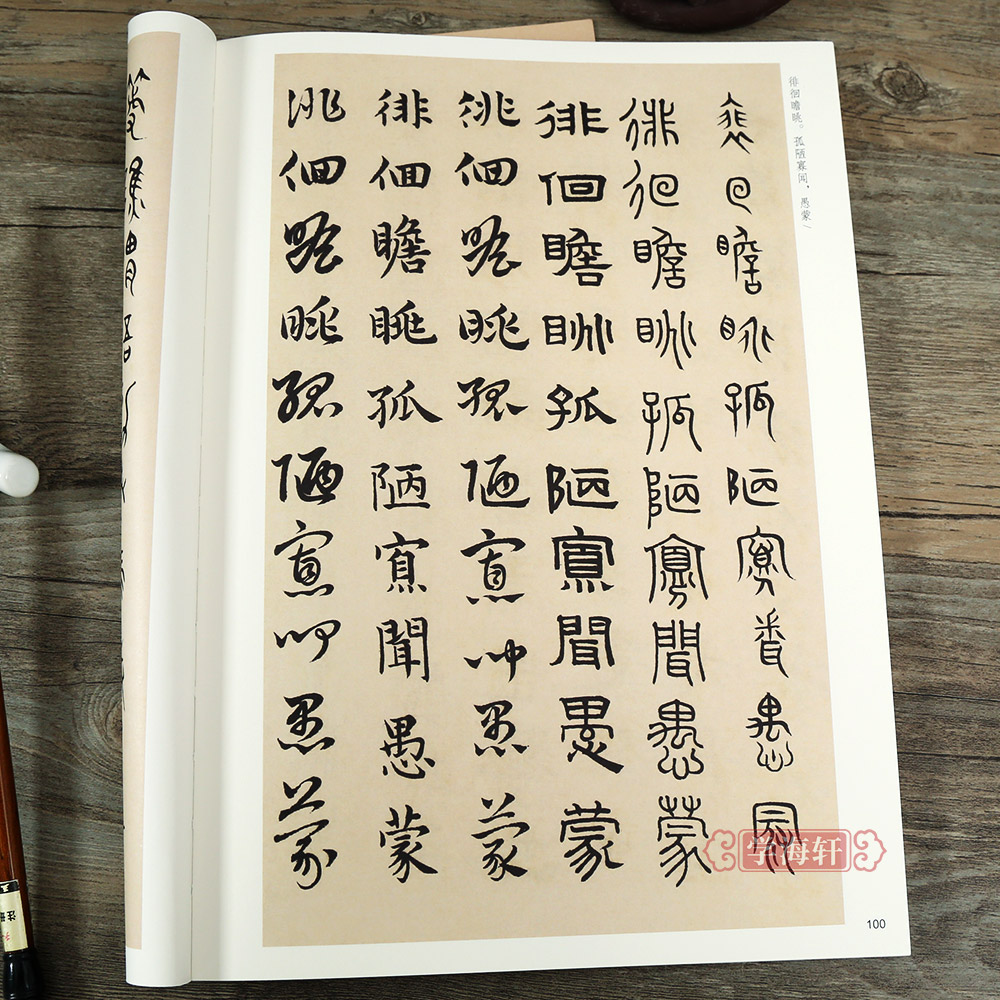 徘徊瞻眺。孤陋寡闻，愚蒙
徘徊瞻眺孤陋寡聞愚蒙
徘徊瞻眺孤陋寡聞愚蒙
徘徊瞻眺孤陋寡聞愚蒙
徘徊瞻眺孤陋寡聞愚蒙
徘徊瞻眺孤陋寡聞愚蒙
徘徊瞻眺孤陋寡聞愚蒙
学海轩
100